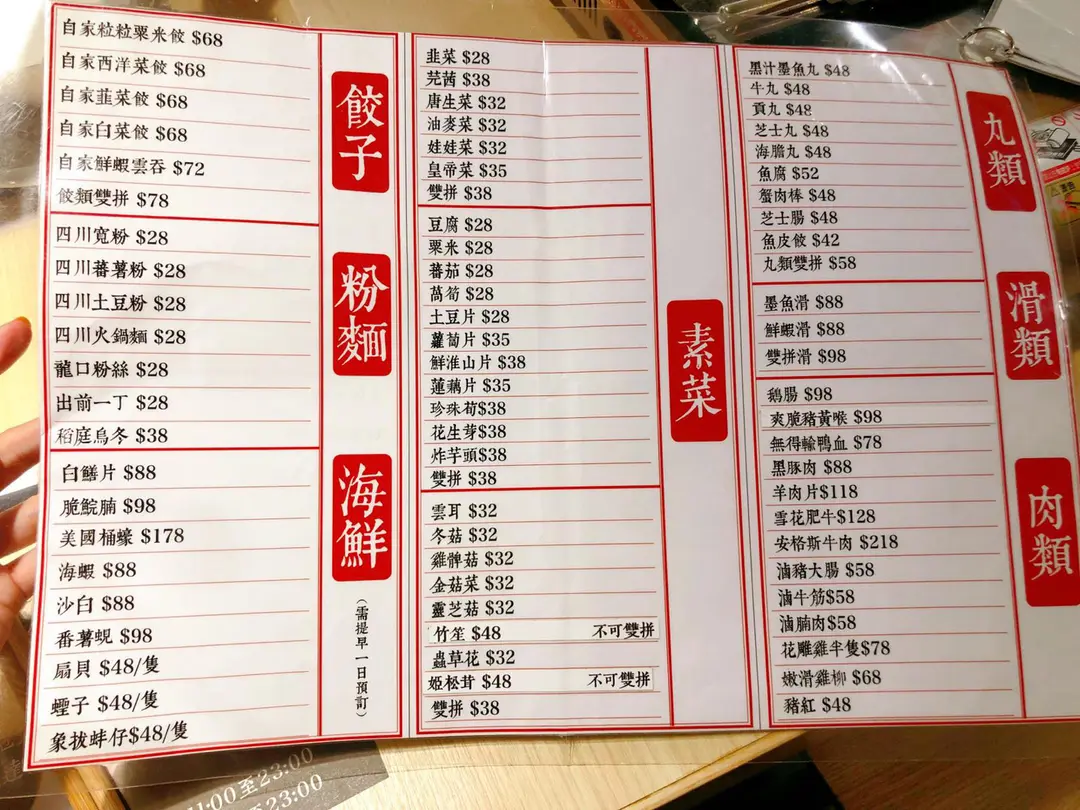 自家粒粒粟米餃 $68
自家西洋菜餃 $68
自家韮菜餃 $68
自家白菜餃 $68
自家鮮蝦雲吞 $72
餃類雙拼 $78
餃子
四川寬粉 $28
四川蕃薯粉 $28
四川土豆粉 $28
四川火鍋麵 $28
龍口粉絲 $28
出前一丁 $28
稻庭烏冬 $38
粉麵
白鱔片 $88
脆鯇腩 $98
美國桶蠔 $178
海蝦 $88
沙白 $88
番薯蜆 $98
扇貝 $48/隻
蟶子 $48/隻
象拔蚌仔$48/隻
海鮮
（需提早一日預訂）
韭菜 $28
芫茜 $38
唐生菜 $32
油麥菜 $32
娃娃菜 $32
皇帝菜 $35
雙拼 $38
豆腐 $28
粟米 $28
蕃茄 $28
萵筍 $28
土豆片 $28
蘿蔔片 $35
鮮淮山片 $38
蓮藕片 $35
珍珠荀$38
花生芽$38
炸芋頭$38
雙拼 $38
雲耳 $32
冬菇 $32
雞髀菇 $32
金菇菜 $32
靈芝菇 $32
竹笙 $48 不可雙拼
蟲草花 $32
姬松茸 $48 不可雙拼
雙拼 $38
素菜
黑汁墨魚丸 $48
牛丸 $48
貢丸 $48
芝士丸 $48
海膽丸 $48
魚腐 $52
蟹肉棒 $48
芝士腸 $48
魚皮餃 $42
丸類雙拼 $58
丸類
墨魚滑 $88
鮮蝦滑 $88
雙拼滑 $98
滑類
鵝腸 $98
爽脆豬黃喉 $98
無得輸鴨血 $78
黑豚肉 $88
羊肉片$118
雪花肥牛$128
安格斯牛肉 $218
滷豬大腸 $58
滷牛筋$58
滷腩肉$58
花雕雞半隻$78
嫩滑雞柳 $68
豬紅 $48
肉類
:00至23:00
至23:00